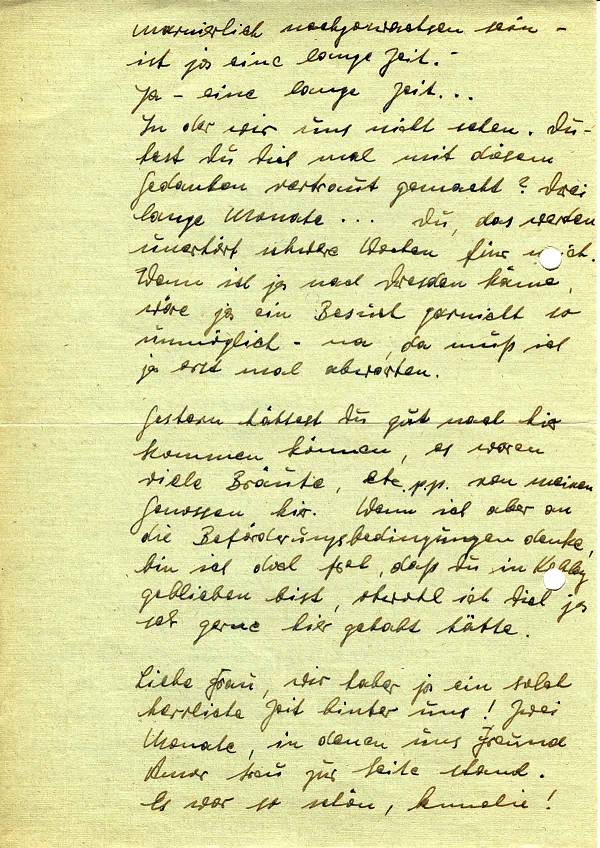 manierlich nachgewachsen sein –
ist ja eine lange Zeit.–
Ja – eine lange Zeit...
In der wir uns nicht sehen. Du-
hast Du Dich mal mit diesem
Gedanken vertraut gemacht? Drei
lange Monate ... Du, das werden
unerhört schwere Wochen für mich.
Wenn ich ja nach Dresden käme,
wäre ja ein Besuch garnicht so
unmöglich – na, da muß ich
ja erst mal abwarten.
Gestern hättest Du gut nach hir
kommen können, es waren
viele Bräute, etc. p.p. von meinen
Genossen hir. Wenn ich aber an
die Beförderungsbedingungen denke,
bin ich doch froh, daß Du in
geblieben bist, obwohl ich Dich ja
sehr gerne hier gehabt hätte.
Liebe Frau, wir haben ja ein solch
herrliche Zeit hinter uns! Zwei
Monate, in denen uns Freund
Amor treu zur Seite stand.
Es war so schön,